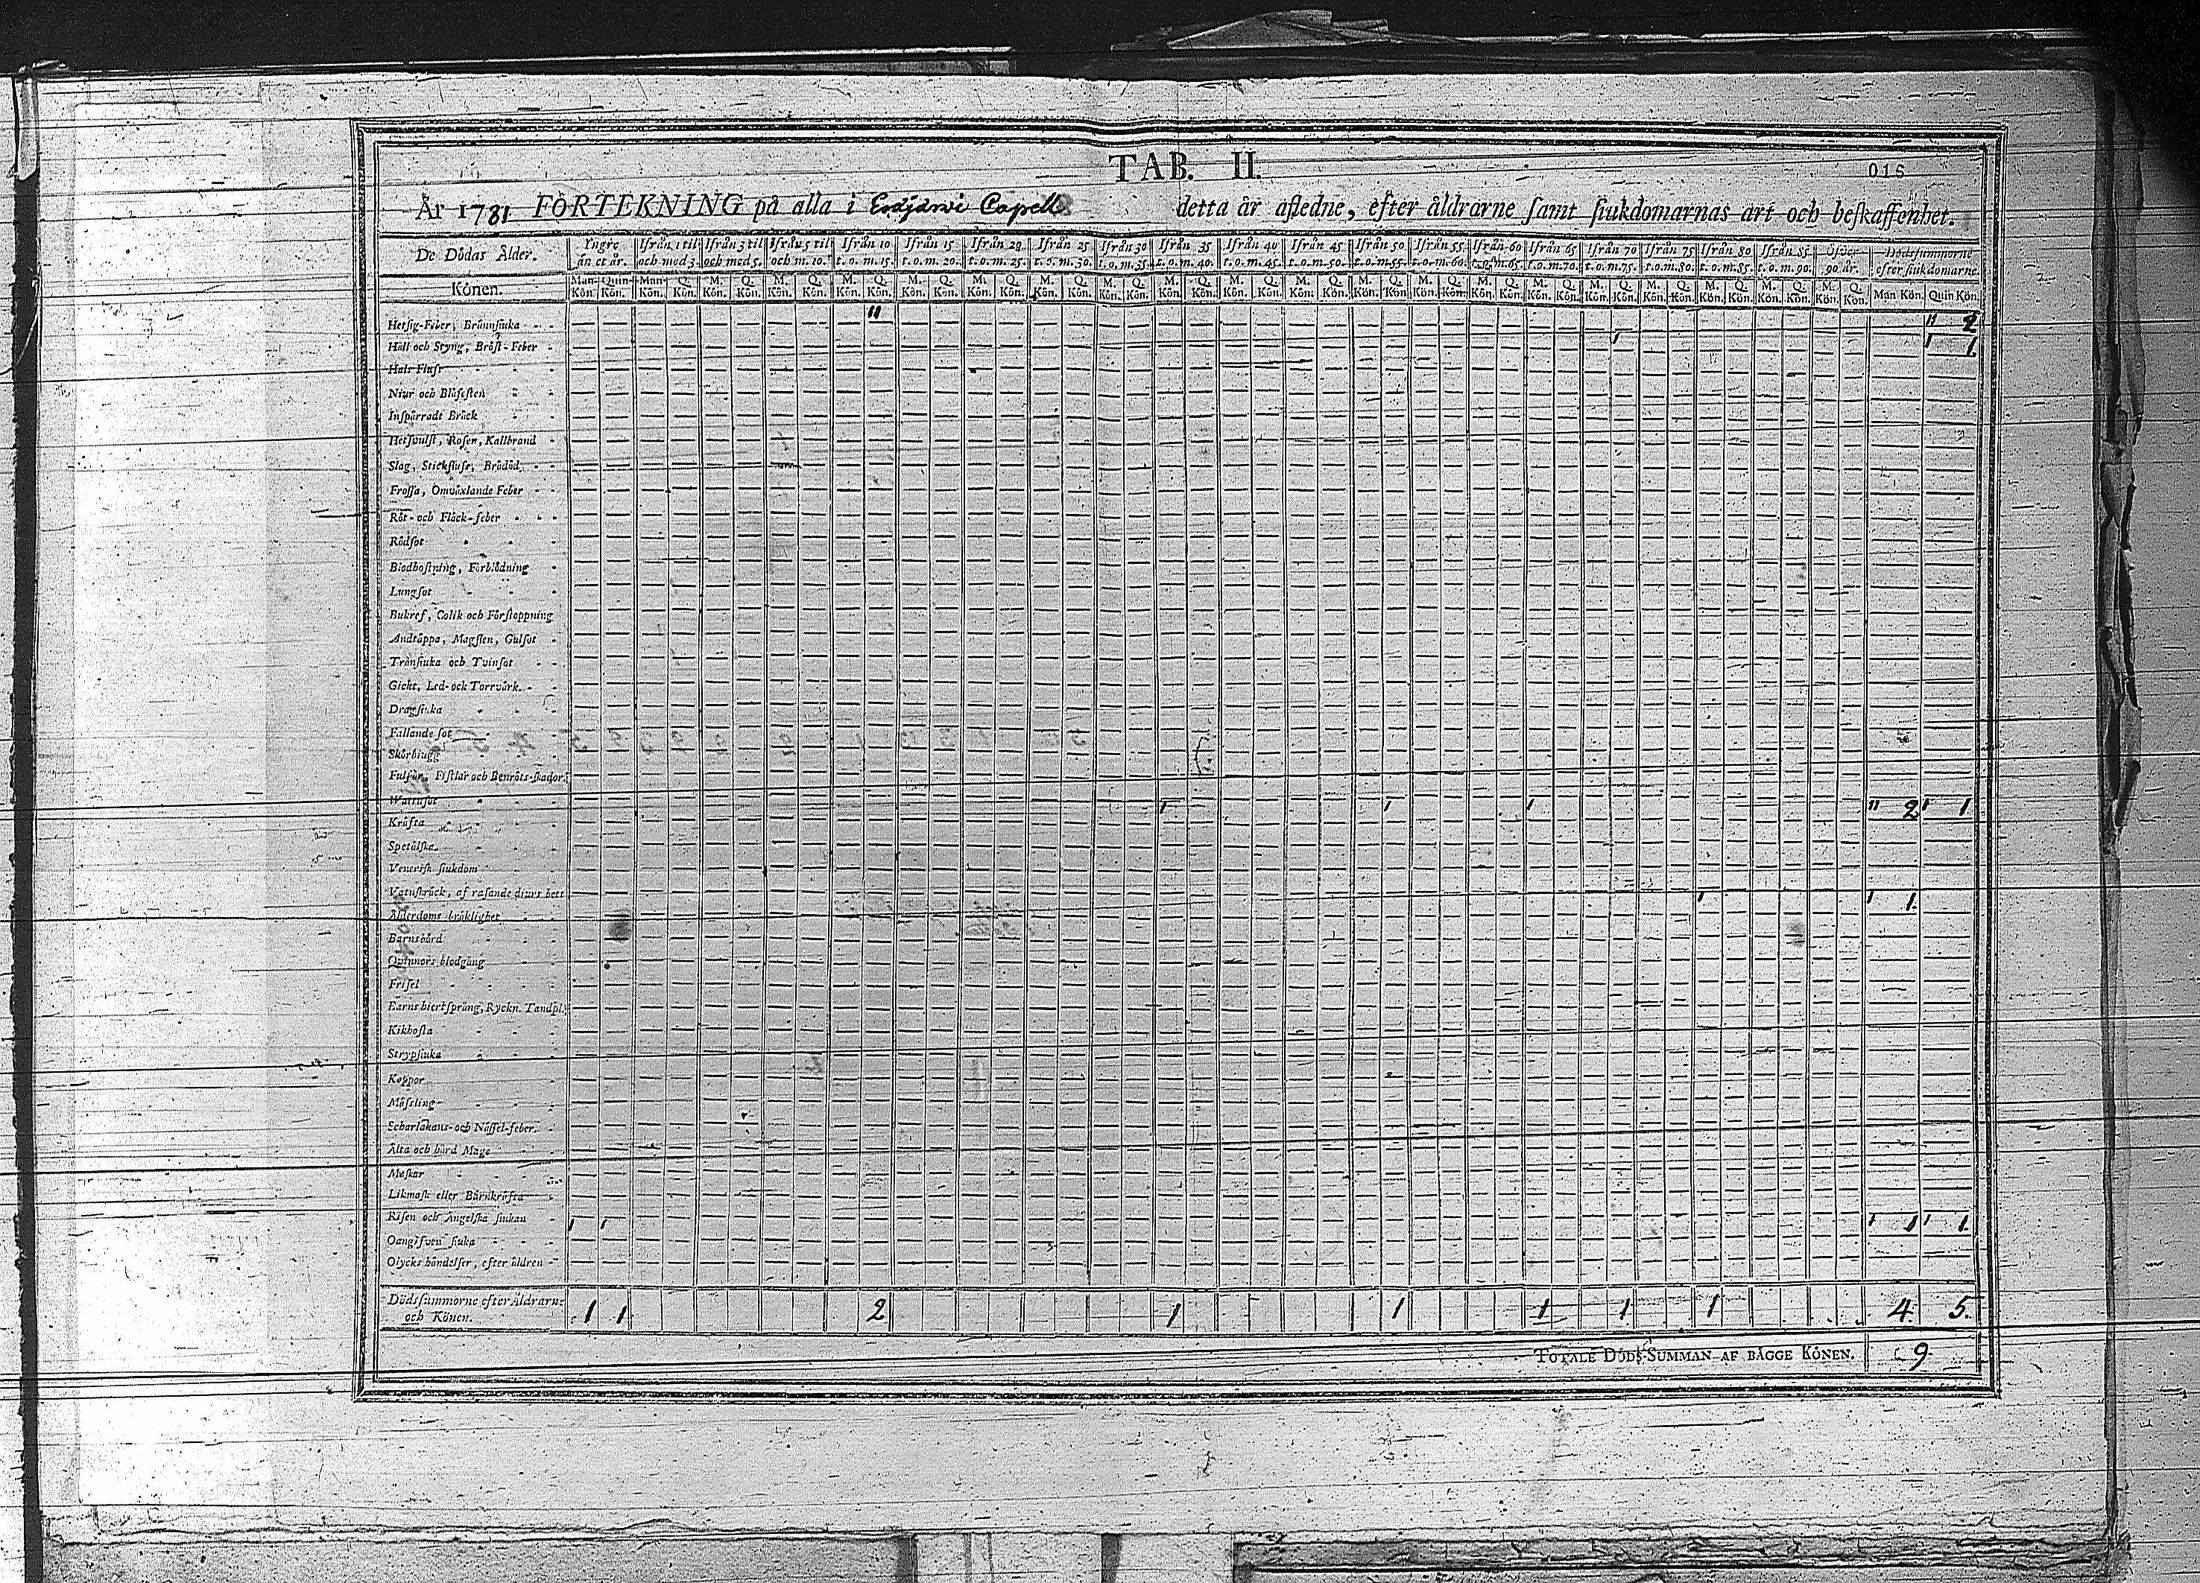 TAB. II.
016
År 1781 FÖRTEKNING på alla i Eräjärvi Capell detta år afledne, efter åldrarne samt siukdomarnas art och beskaffenhet.
De Dödas Ålder. Yngre än et år. Ifrån 1 til och med 3. Ifrån 3 til och med 5. Ifrån 5 til och m. 10. Ifrån 10 t. o. m. 15. Ifrån 15 t. o. m. 20. Ifrån 20 t. o. m. 25. Ifrån 25 t. o. m. 30. Ifrån 30 t. o. m. 35. Ifrån 35 t. o. m. 40. Ifrån 40 t. o. m. 45. Ifrån 45 t. o. m. 50. Ifrån 50 t. o. m. 55. Ifrån 55 t. o. m. 60. Ifrån 60 t. o. m. 65. Ifrån 65 t. o. m. 70. Ifrån 70 t. o. m. 75. Ifrån 75 t. o. m. 80. Ifrån 80 t. o. m. 85. Ifrån 85 t. o. m. 90. Öfver 90 år. Dödssummorne efter siukdomarne.
Könen. Man-Kön. Quin-Kön. Man-Kön. Q. Kön. M. Kön. Q. Kön. M. Kön. Q. Kön. M. Kön. Q. Kön. M. Kön. Q. Kön. M. Kön. Q. Kön. M. Kön. Q. Kön. M. Kön. Q. Kön. M. Kön. Q. Kön. M. Kön. Q. Kön. M. Kön. Q. Kön. M. Kön. Q. Kön. M. Kön. Q. Kön. M. Kön. Q. Kön. M. Kön. Q. Kön. M. Kön. Q. Kön. M. Kön. Q. Kön. M. Kön. Q. Kön. M. Kön. Q. Kön. M. Kön. Q. Kön. Man Kön. Quin Kön.
Hetsig-Feber, Brännsiuka " " 2
Håll och Styng, Bröst-Feber 1 1 1.
Hals Fluss
Niur och Blåsesten
Inspärradt Bråck
Hetsvulst, Rosen, Kallbrand
Slag, Stickfluss, Brådöd
Frossa, Omväxlande Feber
Röt- och Fläck-feber
Rödsot
Blodhostning, Förblödning
Lungsot
Bukref, Colik och Förstoppning
Andtäppa, Magsten, Gulsot
Trånsiuka och Tvinsot
Gickt, Led- ock Torrvärk.
Dragsiuka
Fallande sot
Skörbiugg
Fulsår, Fistlar och Benröts-skador
Wattusot 1 1 1 " 2 1 1
Kräfta
Spetälska
Venerisk siukdom
Vatuskräck, af rasande diurs bett
Ålderdoms bräklighet 1 1 1.
Barnsbörd
Qvinnors blodgång
Frisel
Barns hiertsprång, Ryckn. Tandpl.
Kikhosta
Strypsiuka
Koppor
Mässling
Scharlakans- och Nässel-feber.
Älta och hård Mage
Maskar
Likmask eller Barnkräfta
Risen och Ängelska siukan 1 1 1 1 1 1.
Oangifven siuka
Olycks händelser, efter åldren
Dödssummorne efter Åldrarne och Könen. 1 1 2 1 1 1 1 1 4. 5.
TOTALE DÖDS-SUMMAN AF BÅGGE KÖNEN. 9.